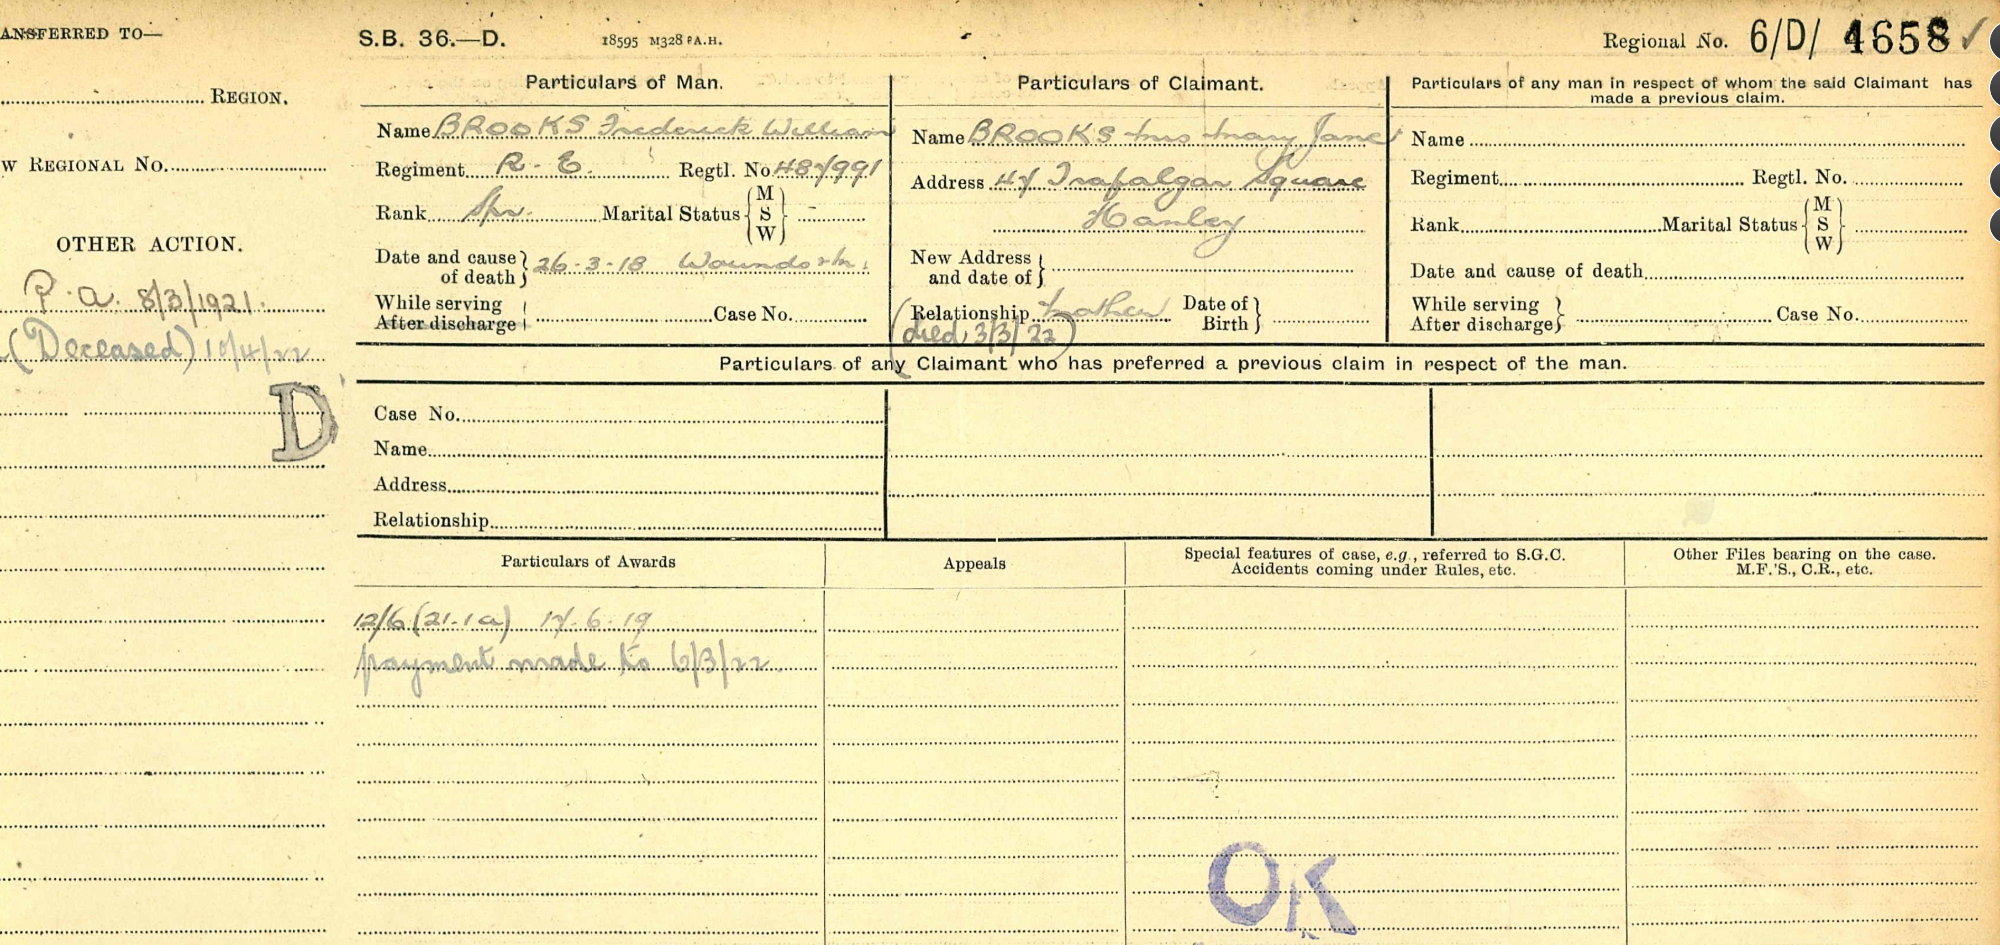 ANSFERRED TO—
REGION.
W REGIONAL NO.
OTHER ACTION.
P.A. 8/3/1921.
(Deceased) 10/4/22
D
S.B. 36.—D.
18595 M328 P A.H.
Regional No. 6/D/ 4658 ✓
Particulars of Man.
Name BROOKS Frederick William
Regiment R.E. Regtl. No. 487991
Rank Spr. Marital Status { M S W } -
Date and cause of death } 26-3-18 Wounds
While serving
After discharge } Case No.
Particulars of Claimant.
Name BROOKS Mrs Mary Jane
Address 47 Trafalgar Square
Hanley
New Address and date of }
Relationship Mother Date of Birth }
(died 3/3/22)
Particulars of any man in respect of whom the said Claimant has
made a previous claim.
Name
Regiment Regtl. No.
Rank Marital Status { M S W }
Date and cause of death
While serving
After discharge } Case No.
Particulars of any Claimant who has preferred a previous claim in respect of the man.
Case No.
Name
Address
Relationship
Particulars of Awards
12/6 (21.1a) 17.6.19
payment made to 6/3/22.
Appeals
Special features of case, e.g., referred to S.G.C.
Accidents coming under Rules, etc.
OK
Other Files bearing on the case.
M.F.'S., C.R., etc.